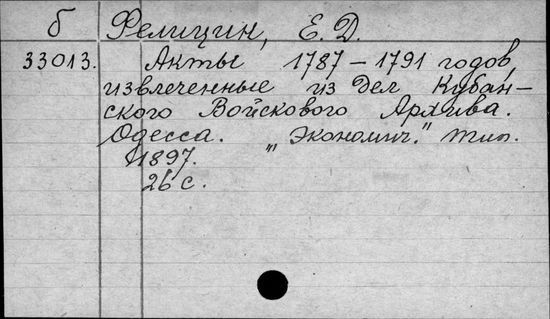 б Фелицин, Е. Д.
33013. Акты 1787 – 1791 годов,
извлеченные из дел Кубан-
ского Войскового Архива.
Одесса. „Экономич." тип.
1897.
26 с.